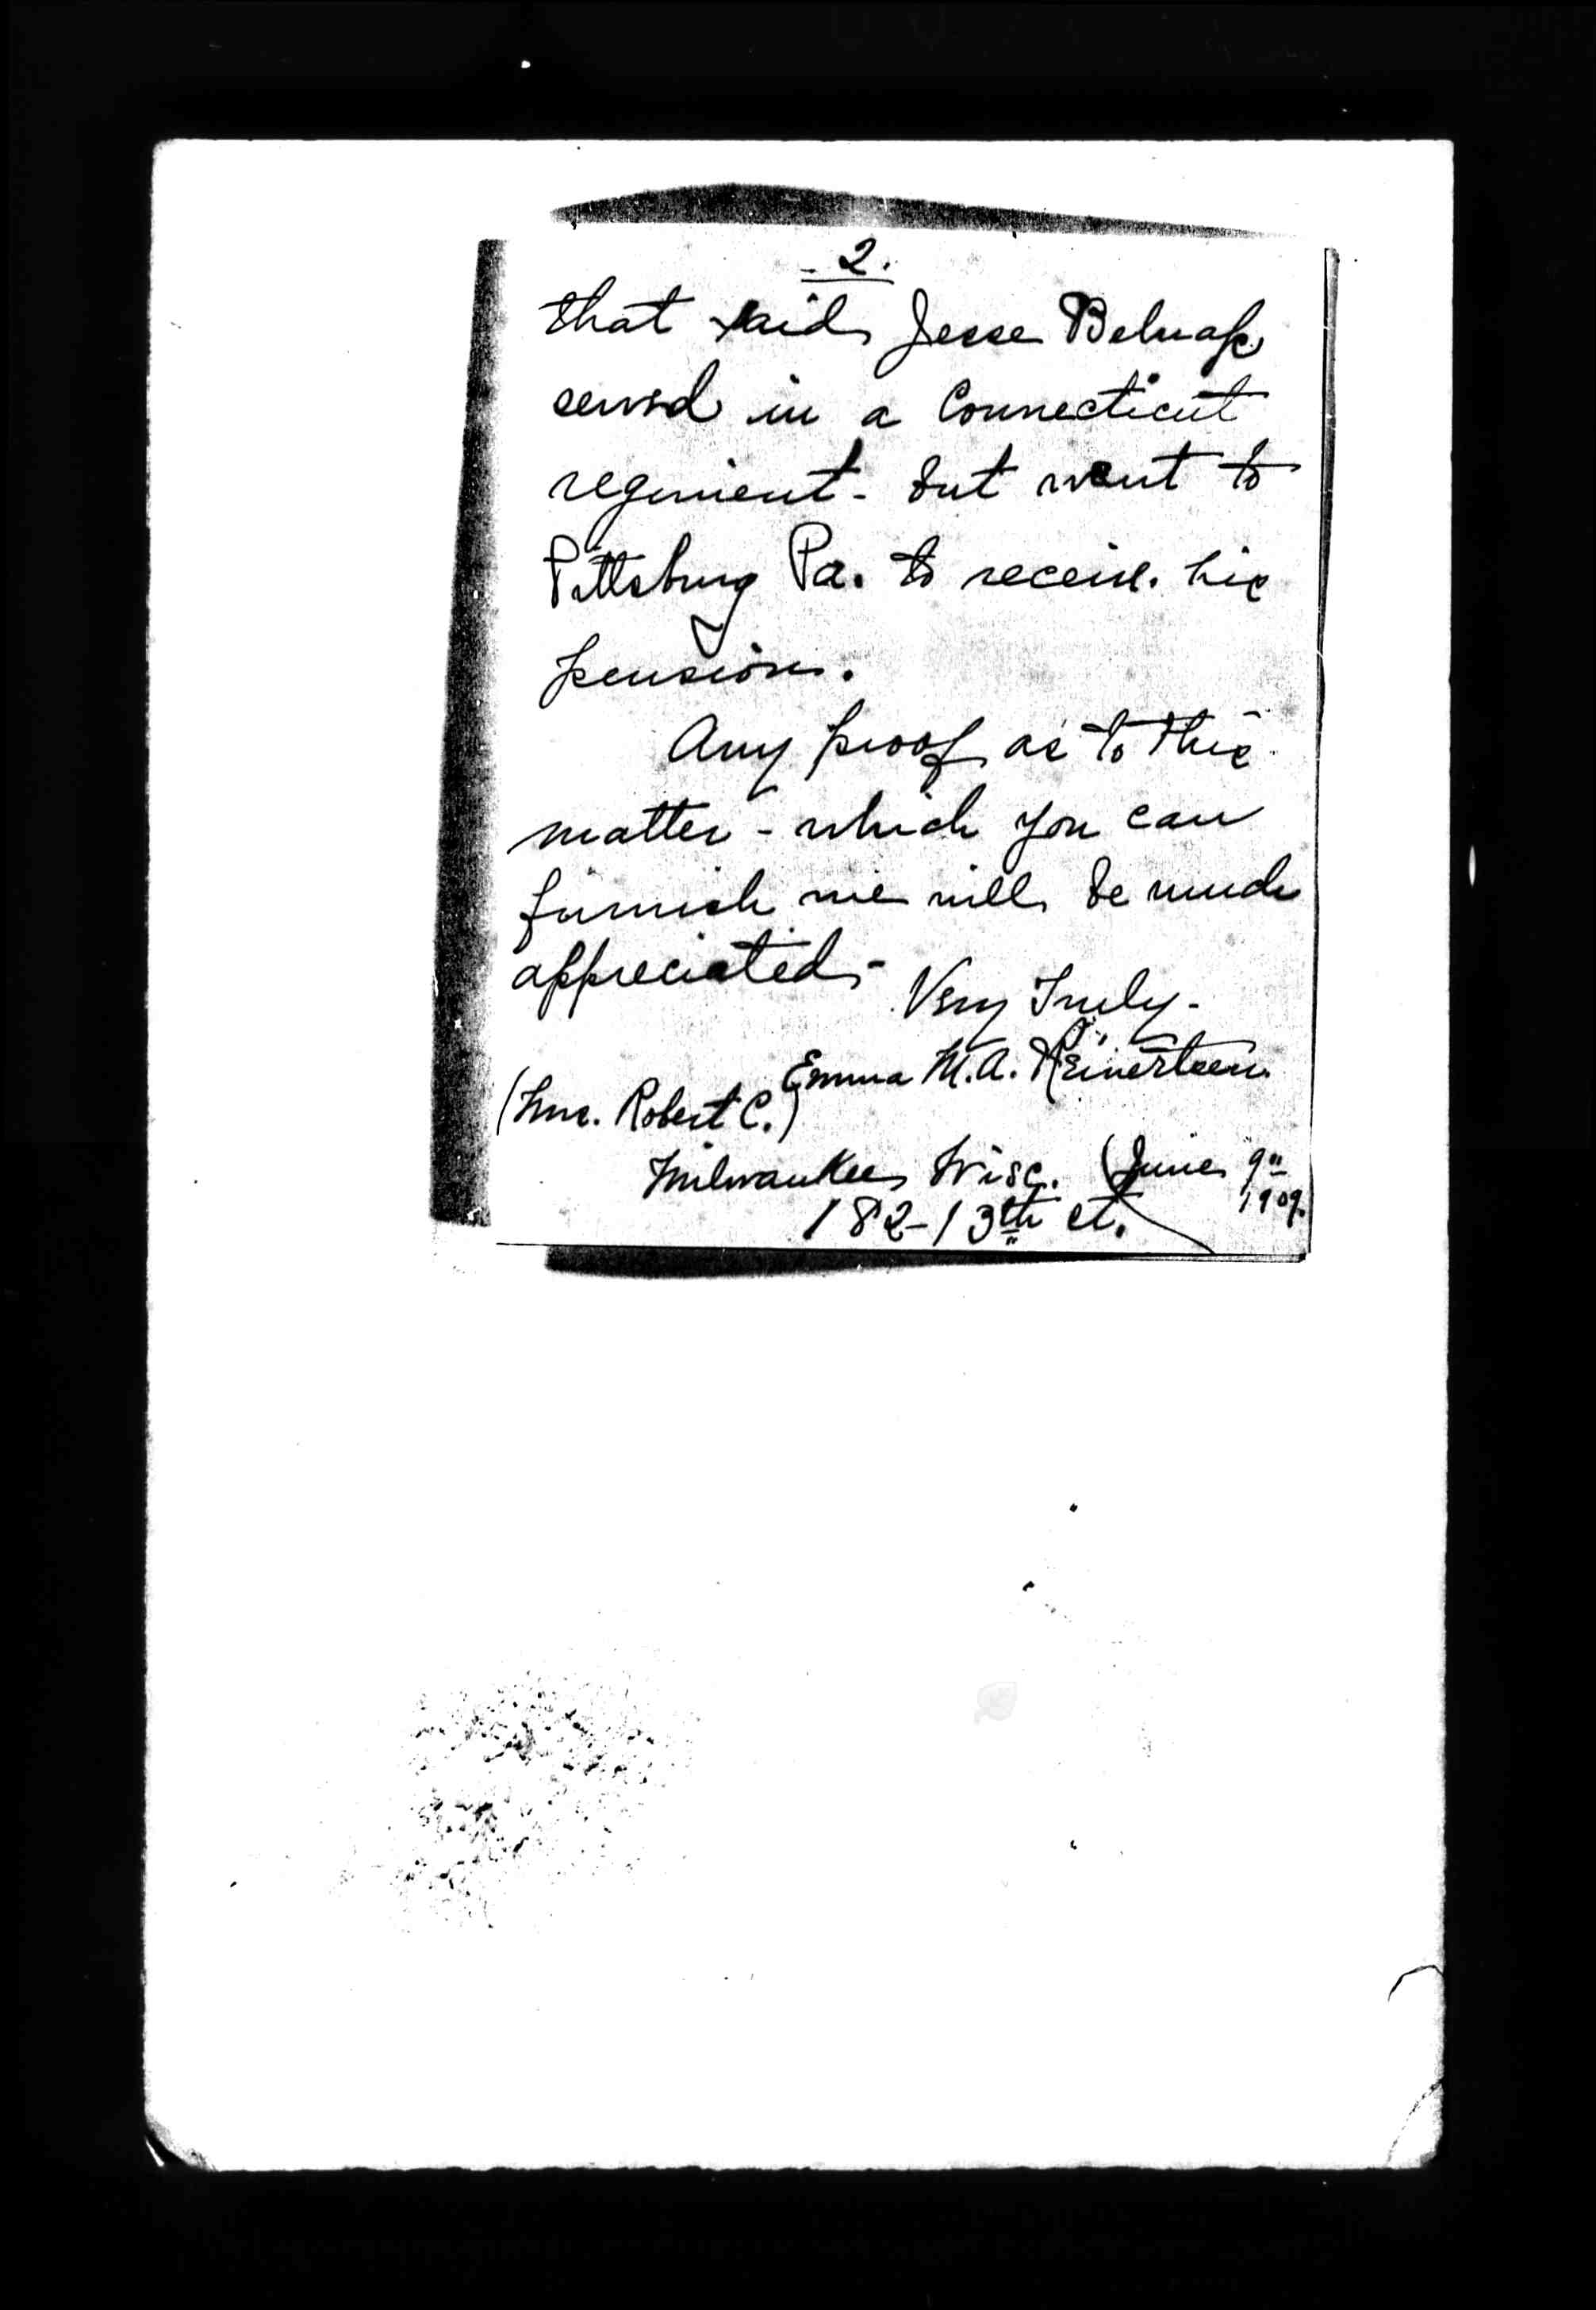 . 2.
that said Jesse Belnap
served in a Connecticut
regiment - but went to
Pittsburg Pa. to receive his
pension.
Any proof as to this
matter - which you can
furnish me will be much
appreciated -
Very Truly -
Emma M. A. Reinertsen.
(Mrs. Robert C.)
Milwaukee Wisc. (June 9"
1909.
182 - 13th st.